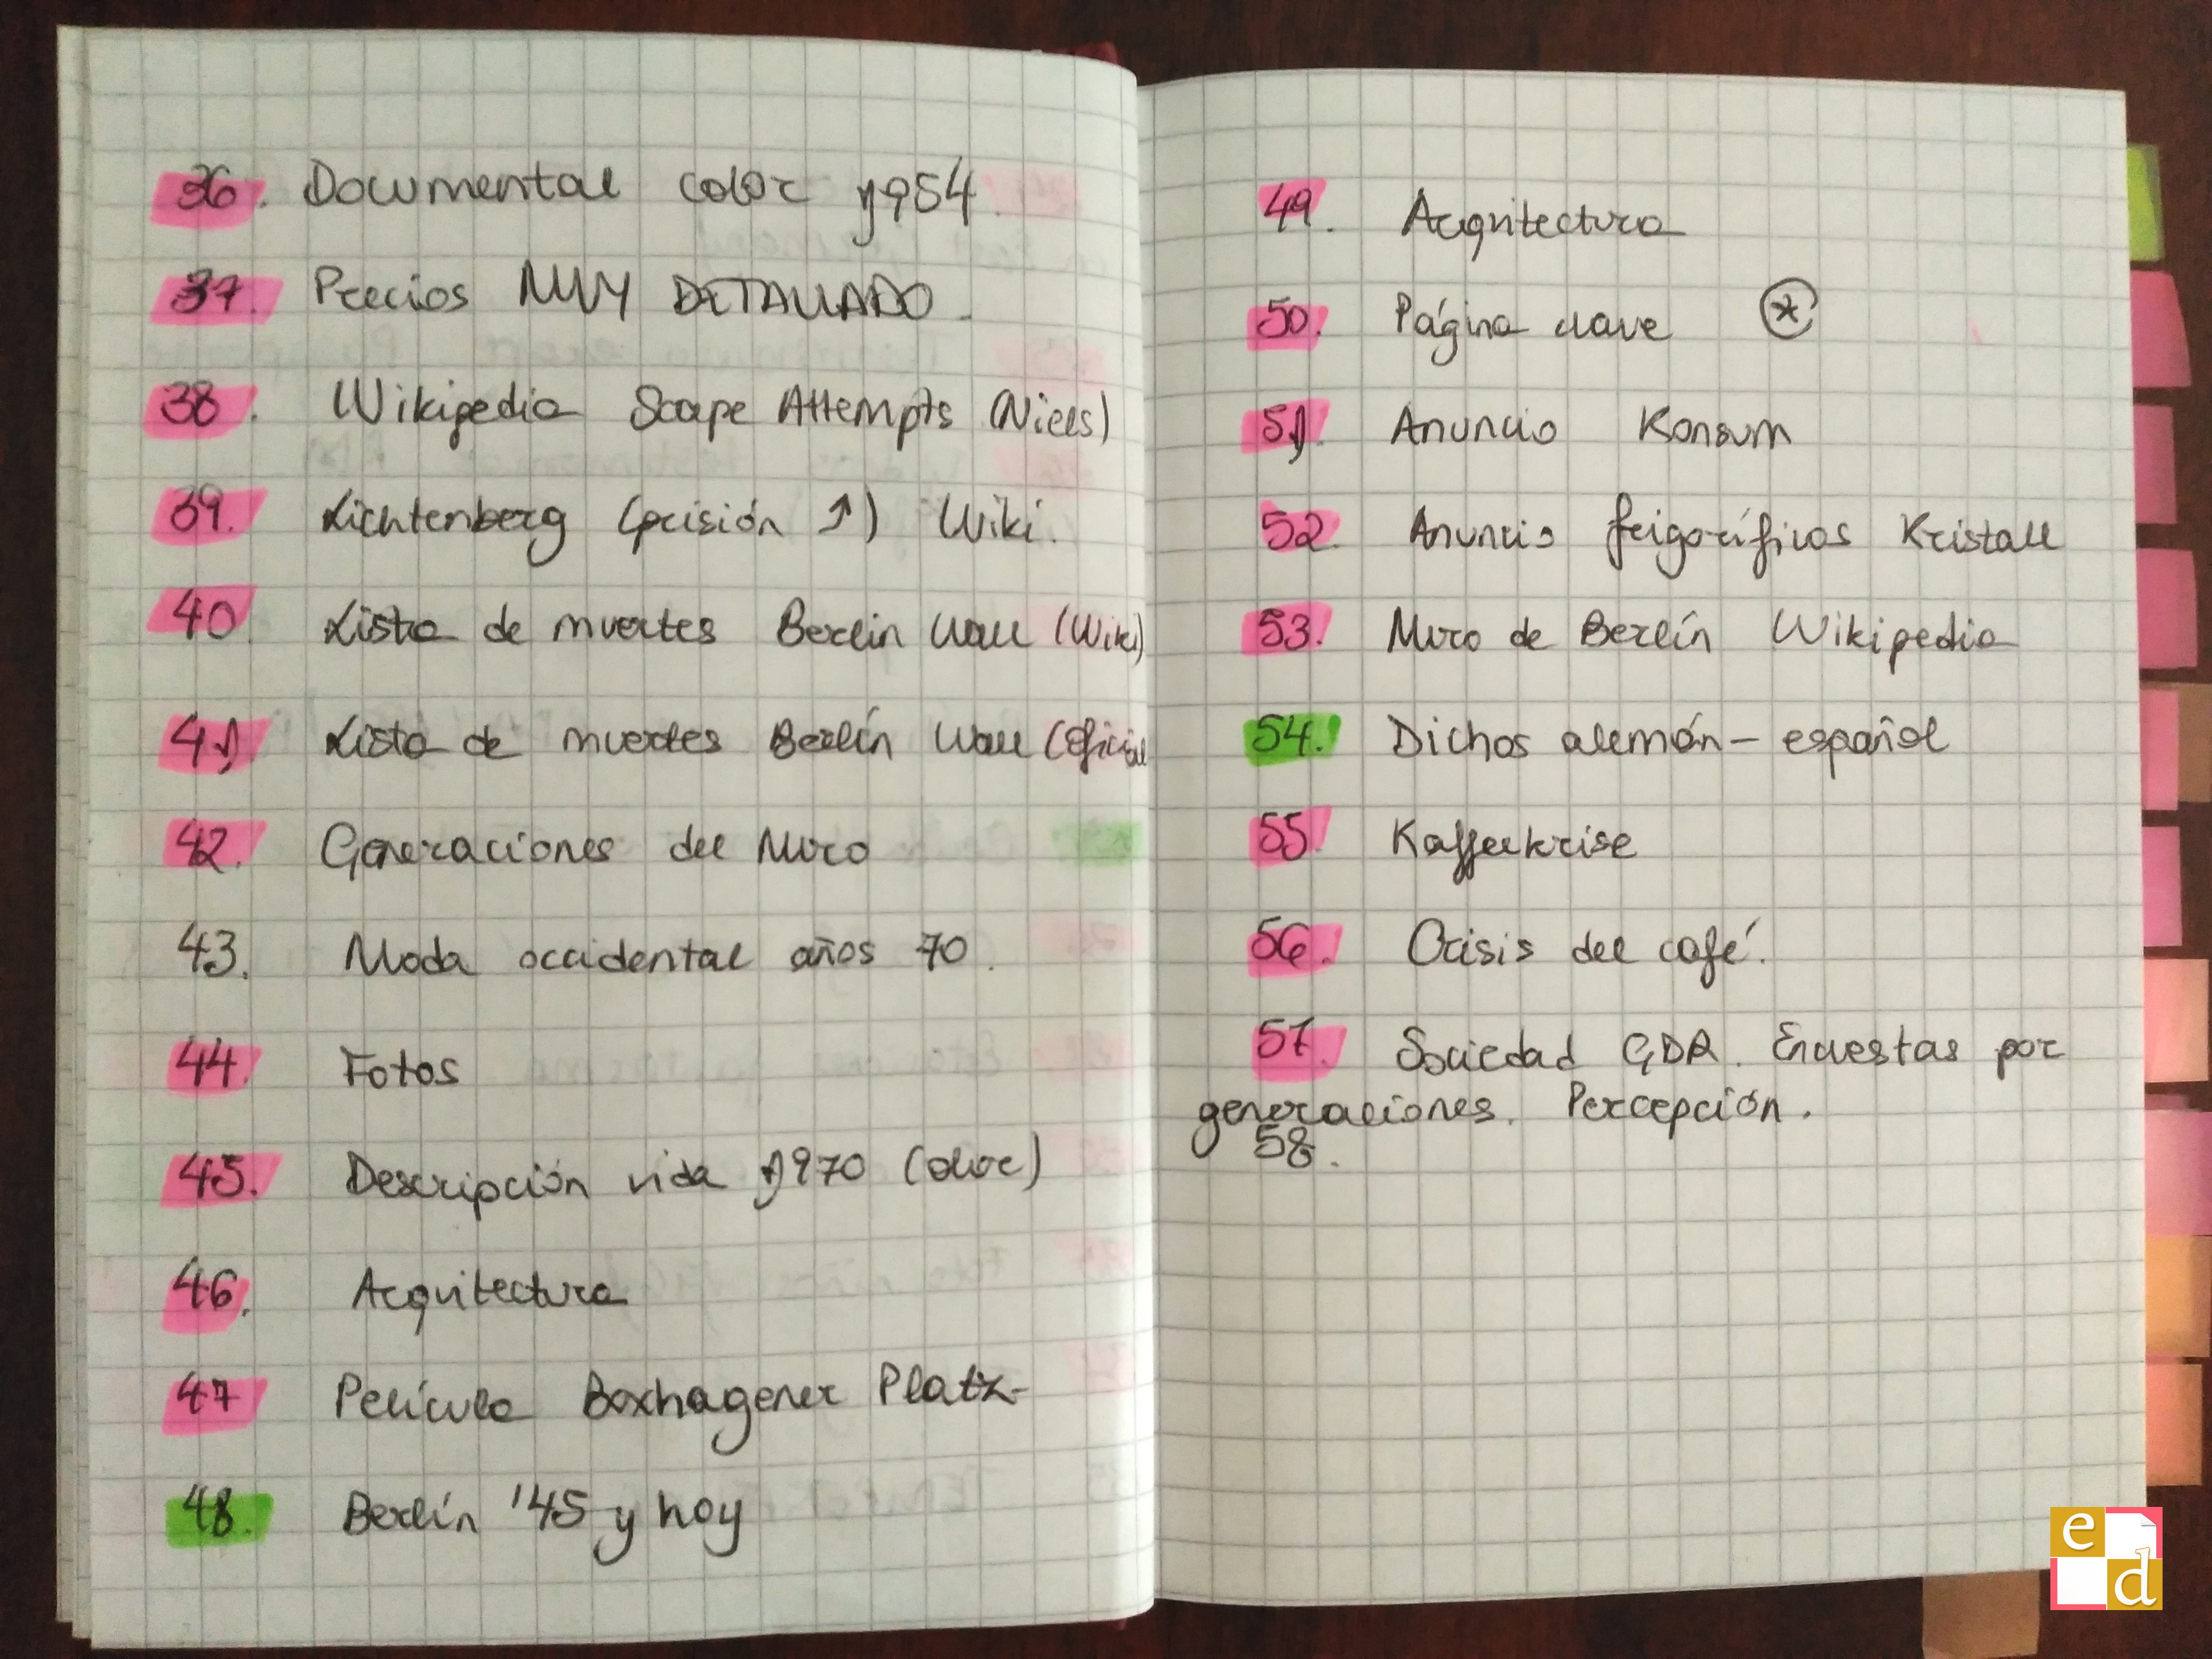 36. Documental color 1954.
37. Precios MUY DETALLADO.
38. Wikipedia Scape Attempts (Niels)
39. Lichtenberg (prisión ↑) Wiki.
40. Lista de muertes Berlin Wall (Wiki)
41. Lista de muertes Berlín Wall (Oficial
42. Generaciones del Muro
43. Moda occidental años 70.
44. Fotos
45. Descripción vida 1970 (color)
46. Arquitectura
47 Película Boxhagener Platz
48. Berlín '45 y hoy
49. Arquitectura
50. Página clave *
51. Anuncio Konsum
52. Anuncio frigoríficos Kristall
53. Muro de Berlín Wikipedia
54. Dichos alemán - español
55. Kaffeekrise
56. Crisis del café.
57. Sociedad GDR. Encuestas por
generaciones. Percepción.
58.
e
d